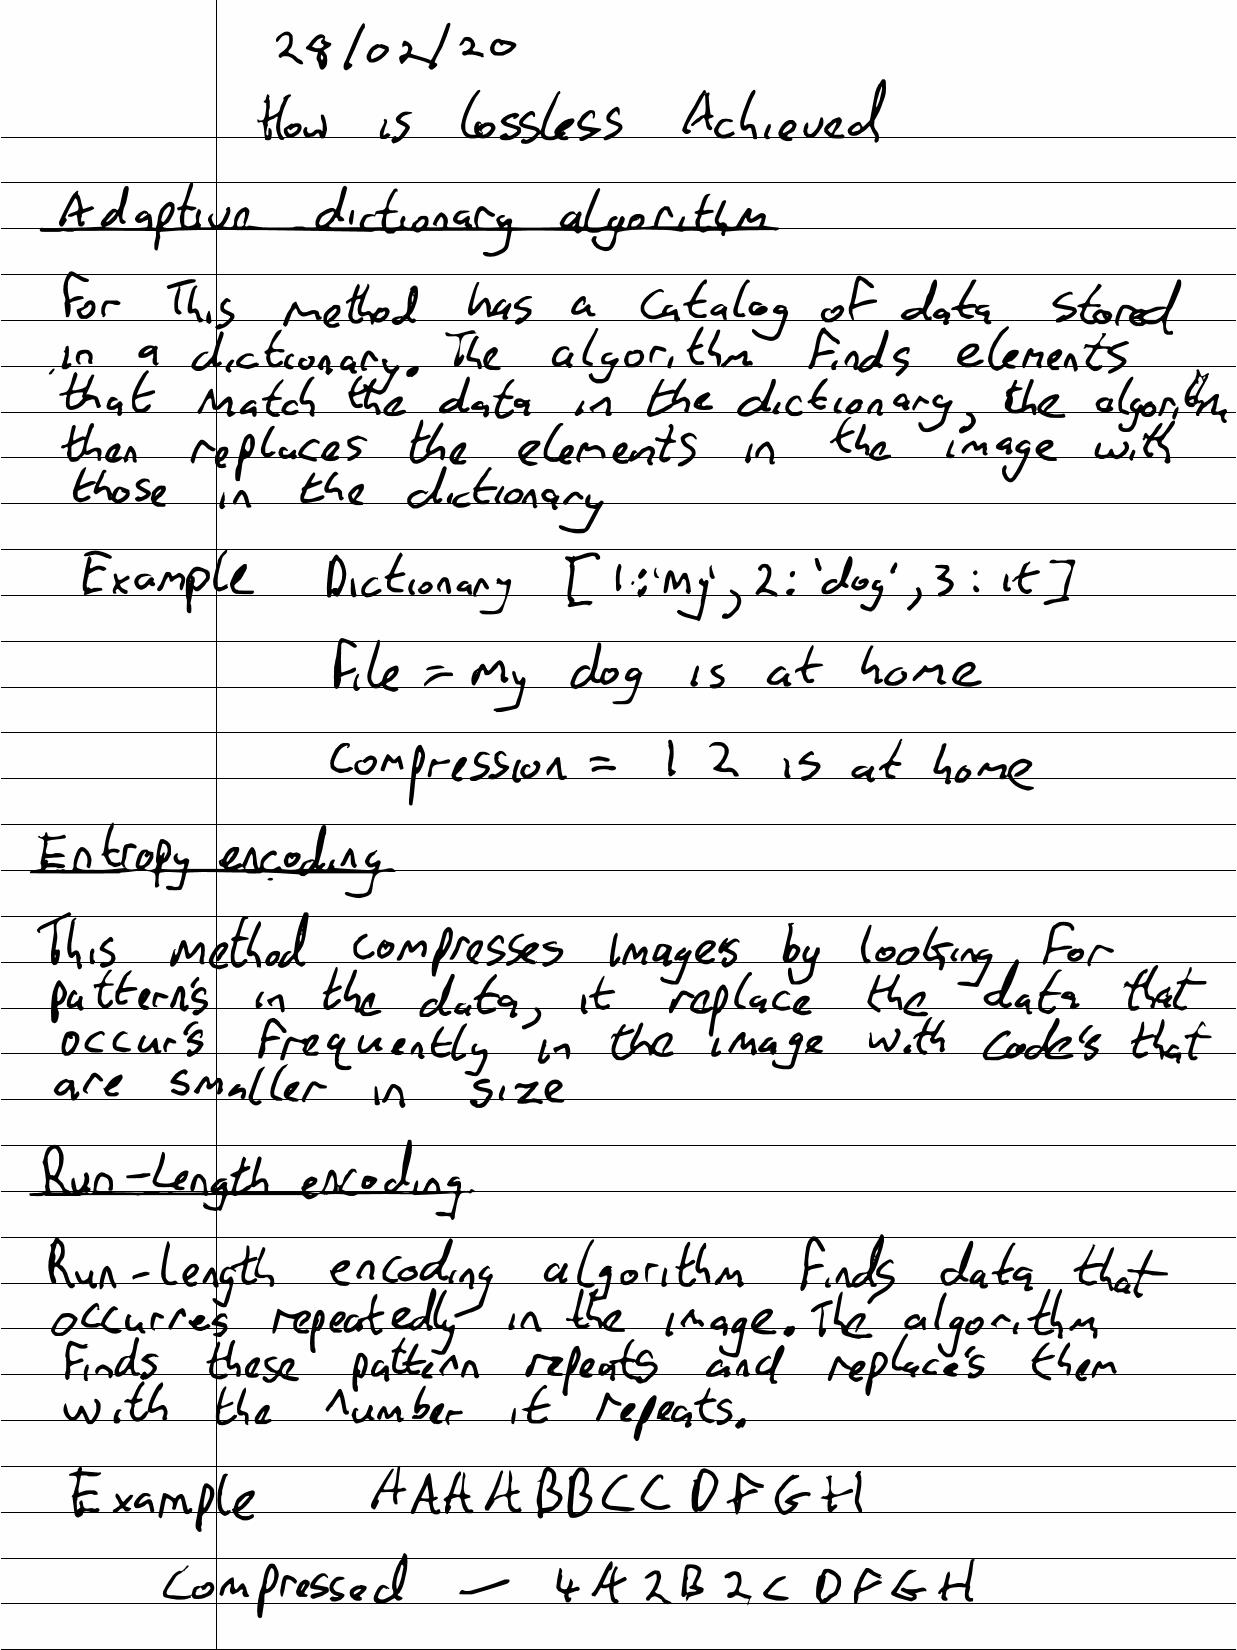 28/02/20
How is lossless Achieved
Adaptivn dictionary algorithm
For This method has a catalog of data stored
in a dictionary. The algorithm finds elements
that match the data in the dictionary, the algorithm
then replaces the elements in the image with
those in the dictionary
Example Dictionary [1:'My', 2: 'dog', 3: it]
File = My dog is at home
Compression = 1 2 is at home
Entropy encoding
This method compresses images by looking for
pattern's in the data, it replace the data that
occur's frequently in the image with code's that
are smaller in size
Run-Length encoding.
Run-Length encoding algorithm finds data that
occurres repeatedly in the image. The algorithm
finds these pattern repeats and replace's them
with the number it repeats.
Example AAAABBCCDFGH
Compressed — 4A2B2CDFGH